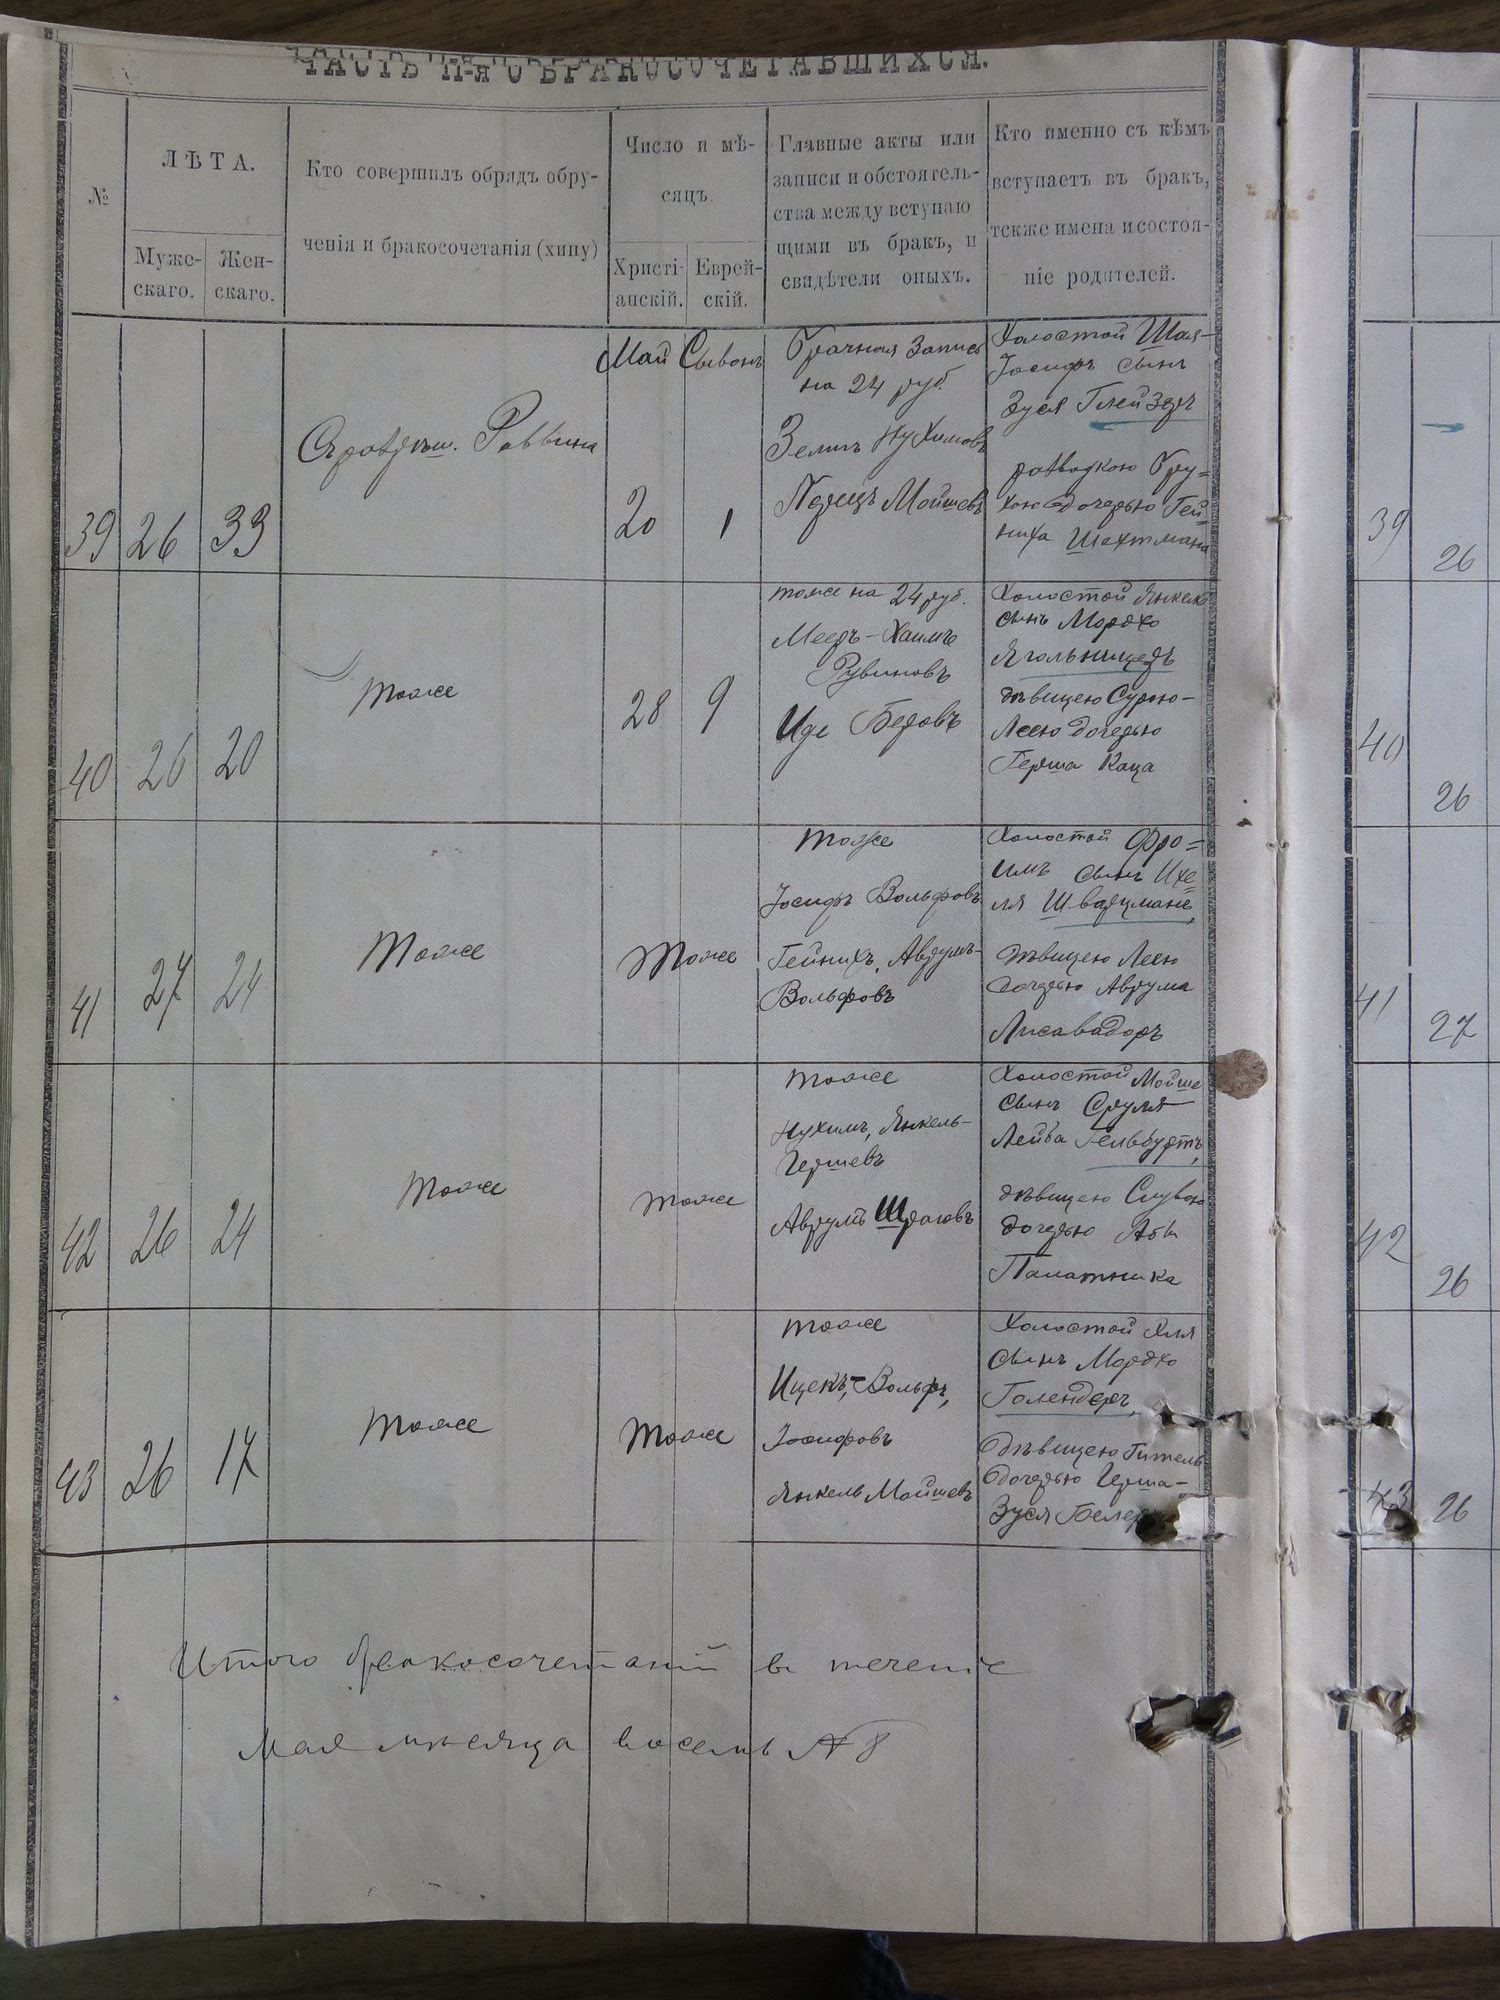 ЧАСТЬ II-я О БРАКОСОЧЕТАВШИХСЯ.
№
ЛѢТА.
Муже-
скаго.
Жен-
скаго.
Кто совершилъ обрядъ обру-
ченія и бракосочетанія (хипу)
Число и мѣ-
сяцъ.
Христі-
анскій.
Еврей-
скій.
Главные акты или
записи и обстоятель-
ства между вступаю
щими въ бракъ, и
свидѣтели оныхъ.
Кто именно съ кѣмъ
вступаетъ въ бракъ,
тскже имена и состоя-
ніе родителей.
39
26
33
Раввина
Май
20
Сывонъ
1
Брачная запись
на 24 руб.
Зелигъ Нухимовъ
Перецъ Мойшевъ
Холостой Шая-
Іосифъ сынъ
Зуся Глейзеръ
разводкою Бру-
хою дочерью Гей-
ниха Шехтмана
40
26
20
тоже
28
9
тоже на 24 руб.
Мееръ-Хаимъ
Рувиновъ
Иде Беровъ
Холостой Янкель
сынъ Мордхо
Ягольницеръ
дѣвицею Сурою-
Леею дочерью
Герша Каца
41
27
24
тоже
тоже
тоже
Іосифъ Вольфовъ
Гейнихъ, Аврумъ-
Вольфовъ
Холостой Фро-
имъ сынъ Ихе-
ля Шварцманъ,
дѣвицею Леею
дочерью Аврума
Лисаводоръ
42
26
24
тоже
тоже
тоже
Нухимъ, Янкель-
Гершевъ
Аврумъ Шраговъ
Холостой Мойше
сынъ Сруля
Лейба Гельбуртъ,
дѣвицею Сливою
дочерью Абы
Палатника
43
26
17
тоже
тоже
тоже
Ицекъ,-Вольфъ,
Іосифовъ
Янкель Мойшевъ
Холостой Хил
сынъ Мордхо
Голендеръ,
дѣвицею Гитель
дочерью Герша-
Зуся
Итого бракосочетаній въ теченіе
Мая мѣсяца восемь № 8
39
26
40
26
41
27
42
26
43
26